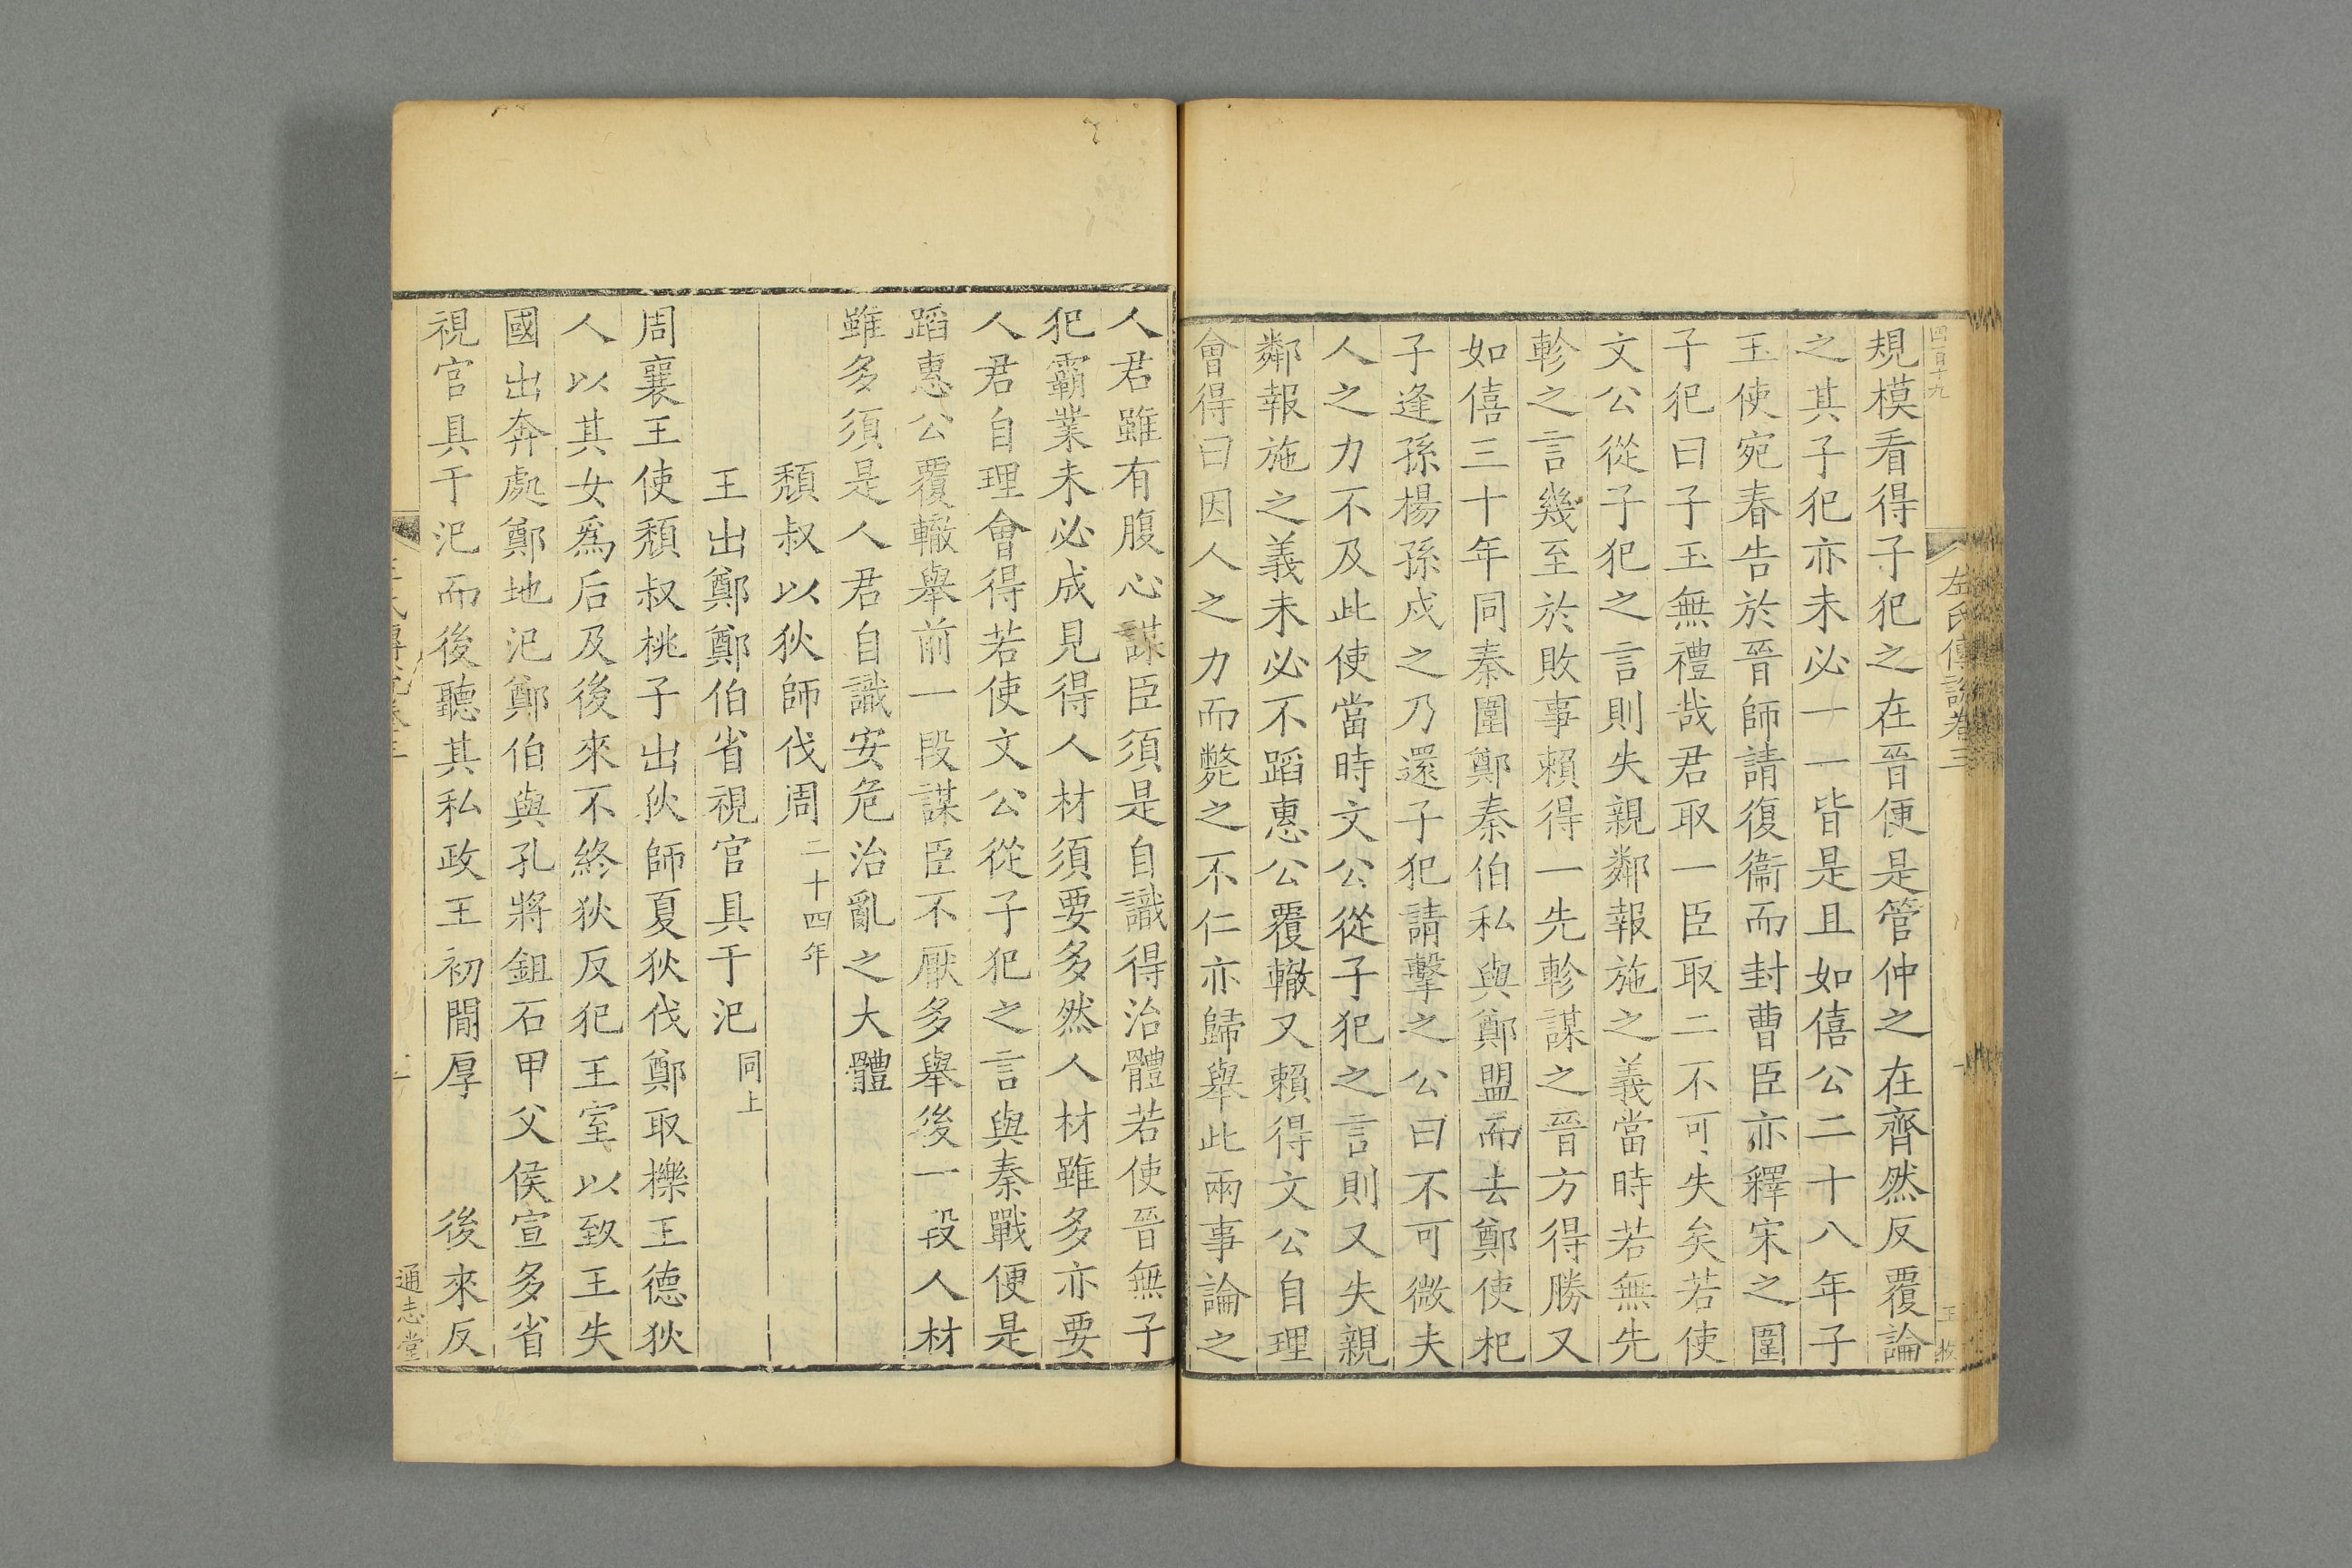 四百十九
左氏傳說卷三
規模看得子犯之在晉便是管仲之在齊然反覆論
之其子犯亦未必一一皆是且如僖公二十八年子
玉使宛春告於晉師請復衞而封曹臣亦釋宋之圍
子犯曰子玉無禮哉君取一臣取二不可失矣若使
文公從子犯之言則失親鄰報施之義當時若無先
軫之言幾至於敗事賴得一先軫謀之晉方得勝又
如僖三十年同秦圍鄭秦伯私與鄭盟而去鄭使杞
子逢孫楊孫戍之乃還子犯請擊之公曰不可微夫
人之力不及此使當時文公從子犯之言則又失親
鄰報施之義未必不蹈惠公覆轍又賴得文公自理
會得曰因人之力而斃之不仁亦歸舉此兩事論之
人君雖有腹心謀臣須是自識得治體若使晉無子
犯霸業未必成見得人材須要多然人材雖多亦要
人君自理會得若使文公從子犯之言與秦戰便是
蹈惠公覆轍舉前一段謀臣不厭多舉後一段人材
雖多須是人君自識安危治亂之大體
頹叔以狄師伐周二十四年
王出鄭鄭伯省視官具于氾同上
周襄王使頹叔桃子出狄師夏狄伐鄭取櫟王德狄
人以其女爲后及後來不終狄反犯王室以致王失
國出奔處鄭地氾鄭伯與孔將鉏石甲父侯宣多省
視官具于氾而後聽其私政王初間厚　後來反
通志堂